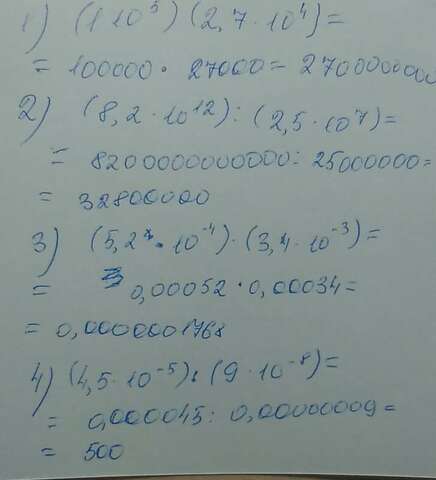 1) (1 · 10⁵) (2,7 · 10⁴) =
= 100000 · 27000 = 2700000000
2) (8,2 · 10¹²) : (2,5 · 10⁷) =
= 8200000000000 : 25000000 =
= 32800000
3) (5,2 · 10⁻⁴) · (3,4 · 10⁻³) =
= 0,00052 · 0,00034 =
= 0,0000001768
4) (4,5 · 10⁻⁵) : (9 · 10⁻⁸) =
= 0,000045 : 0,00000009 =
= 500